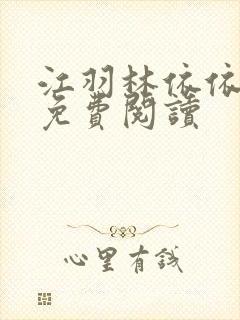 江羽林依依
免費閱讀
心里有錢